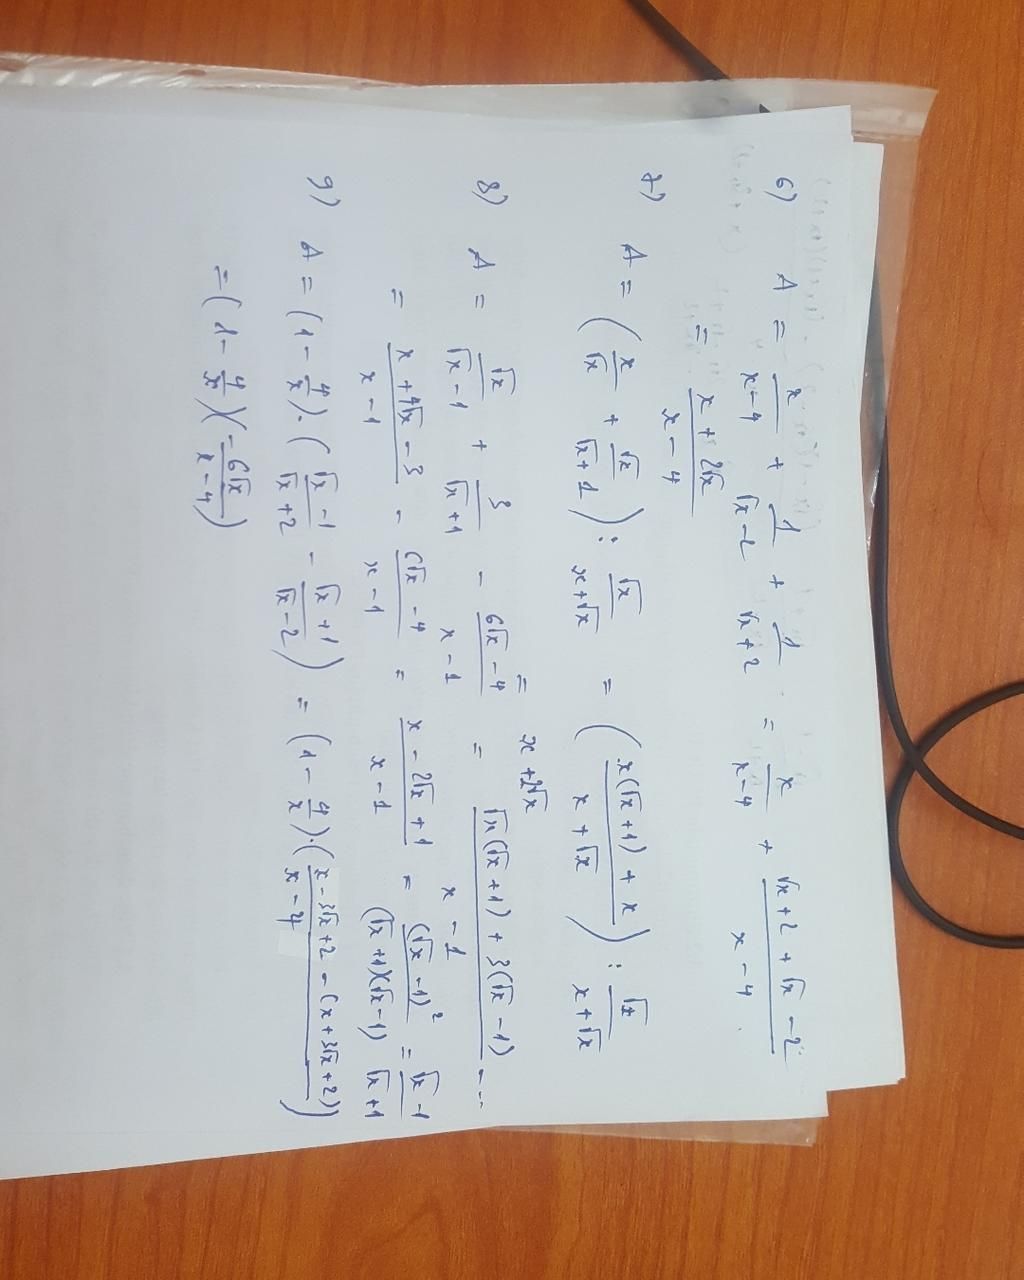 6) A = x/x-4 + 1/√x-2 + 1/√x+2 = x/x-4 + √x+2 + √x-2/x-4
= x+2√x/x-4
7) A = (x/√x + √x/√x+1) : √x/x+√x = (x(√x+1)+x/x+√x) : √x/x+√x
= x+2√x
8) A = √x/√x-1 + 3/√x+1 - 6√x-4/x-1 = √x(√x+1)+3(√x-1)/x-1 ---
= x+4√x-3/x-1 - 6√x-4/x-1 = x-2√x+1/x-1 = (√x-1)²/(√x+1)(√x-1) = √x-1/√x+1
9) A = (1-4/x).(√x-1/√x+2 - √x+1/√x-2) = (1-4/x).(x-3√x+2-(x+3√x+2)/x-4)
= (1-4/x)(-6√x/x-4)